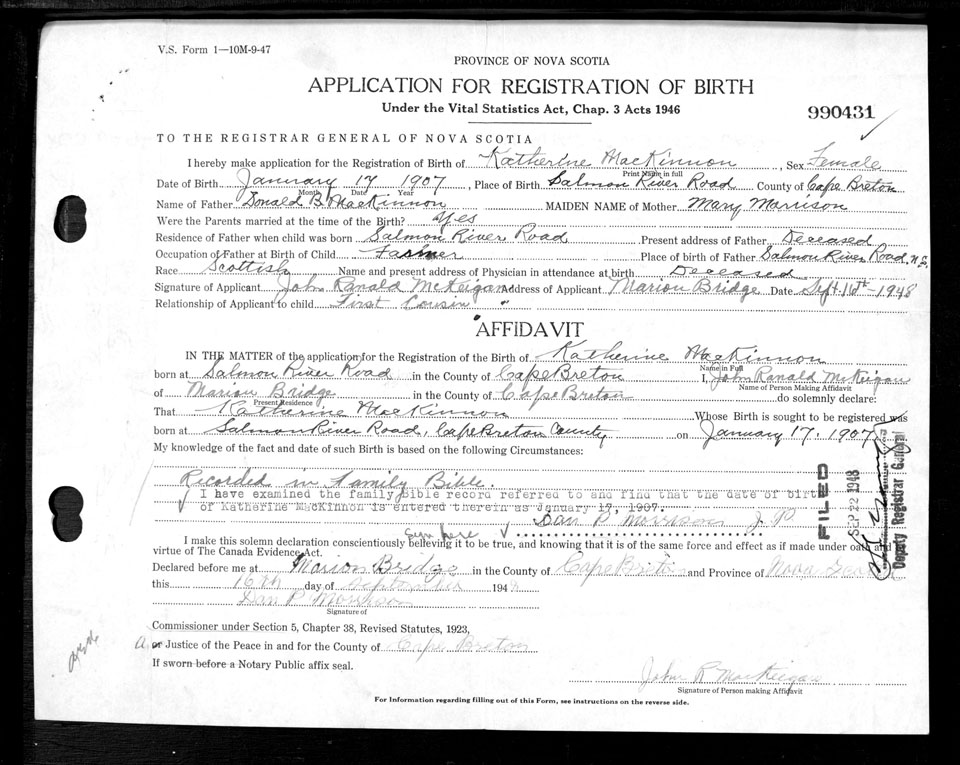 V.S. Form 1—10M-9-47
PROVINCE OF NOVA SCOTIA
APPLICATION FOR REGISTRATION OF BIRTH
Under the Vital Statistics Act, Chap. 3 Acts 1946
990431
TO THE REGISTRAR GENERAL OF NOVA SCOTIA
I hereby make application for the Registration of Birth of Katherine MacKinnon, Sex Female
Print Name in full
Date of Birth January 17 1907, Place of Birth Salmon River Road County of Cape Breton
Month Date Year
Name of Father Donald B. MacKinnon MAIDEN NAME of Mother Mary Morrison
Were the Parents married at the time of the Birth? Yes
Residence of Father when child was born Salmon River Road Present address of Father Deceased
Occupation of Father at Birth of Child Farmer Place of birth of Father Salmon River Road, N.S.
Race Scottish Name and present address of Physician in attendance at birth Deceased
Signature of Applicant John Ranald McKeigan Address of Applicant Marion Bridge Date Sept. 16th - 1948
Relationship of Applicant to child First Cousin "
AFFIDAVIT
IN THE MATTER of the application for the Registration of the Birth of Katherine MacKinnon
Name in Full
born at Salmon River Road in the County of Cape Breton I, John Ranald McKeigan
Name of Person Making Affidavit
of Marion Bridge in the County of Cape Breton do solemnly declare:
Present Residence
That Katherine MacKinnon Whose Birth is sought to be registered was
born at Salmon River Road, Cape Breton County on January 17, 1907
My knowledge of the fact and date of such Birth is based on the following Circumstances:
Recorded in Family Bible.
I have examined the family Bible record referred to and find that the date of birth
of Katherine MacKinnon is entered therein as January 17, 1907.
Dan P Morrison J.P.
Sign here
I make this solemn declaration conscientiously believing it to be true, and knowing that it is of the same force and effect as if made under oath and
virtue of The Canada Evidence Act.
Declared before me at Marion Bridge in the County of Cape Breton and Province of Nova
this 16th day of September 1948
Dan P Morrison
Signature of
Commissioner under Section 5, Chapter 38, Revised Statutes, 1923,
A or Justice of the Peace in and for the County of Cape Breton
If sworn before a Notary Public affix seal.
John R MacKeigan
Signature of Person making Affidavit
For Information regarding filling out of this Form, see instructions on the reverse side.
FILED
SEP 22 1948
Deputy Registrar General